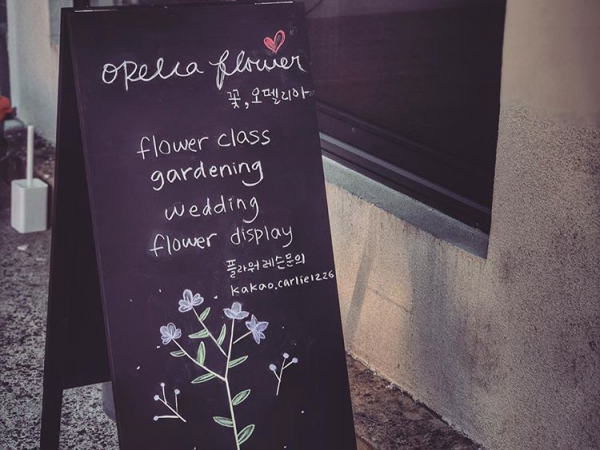 opelia flower
꽃,오펠리아
flower class
gardening
wedding
flower display
플라워레슨문의
kakao.carlie1226